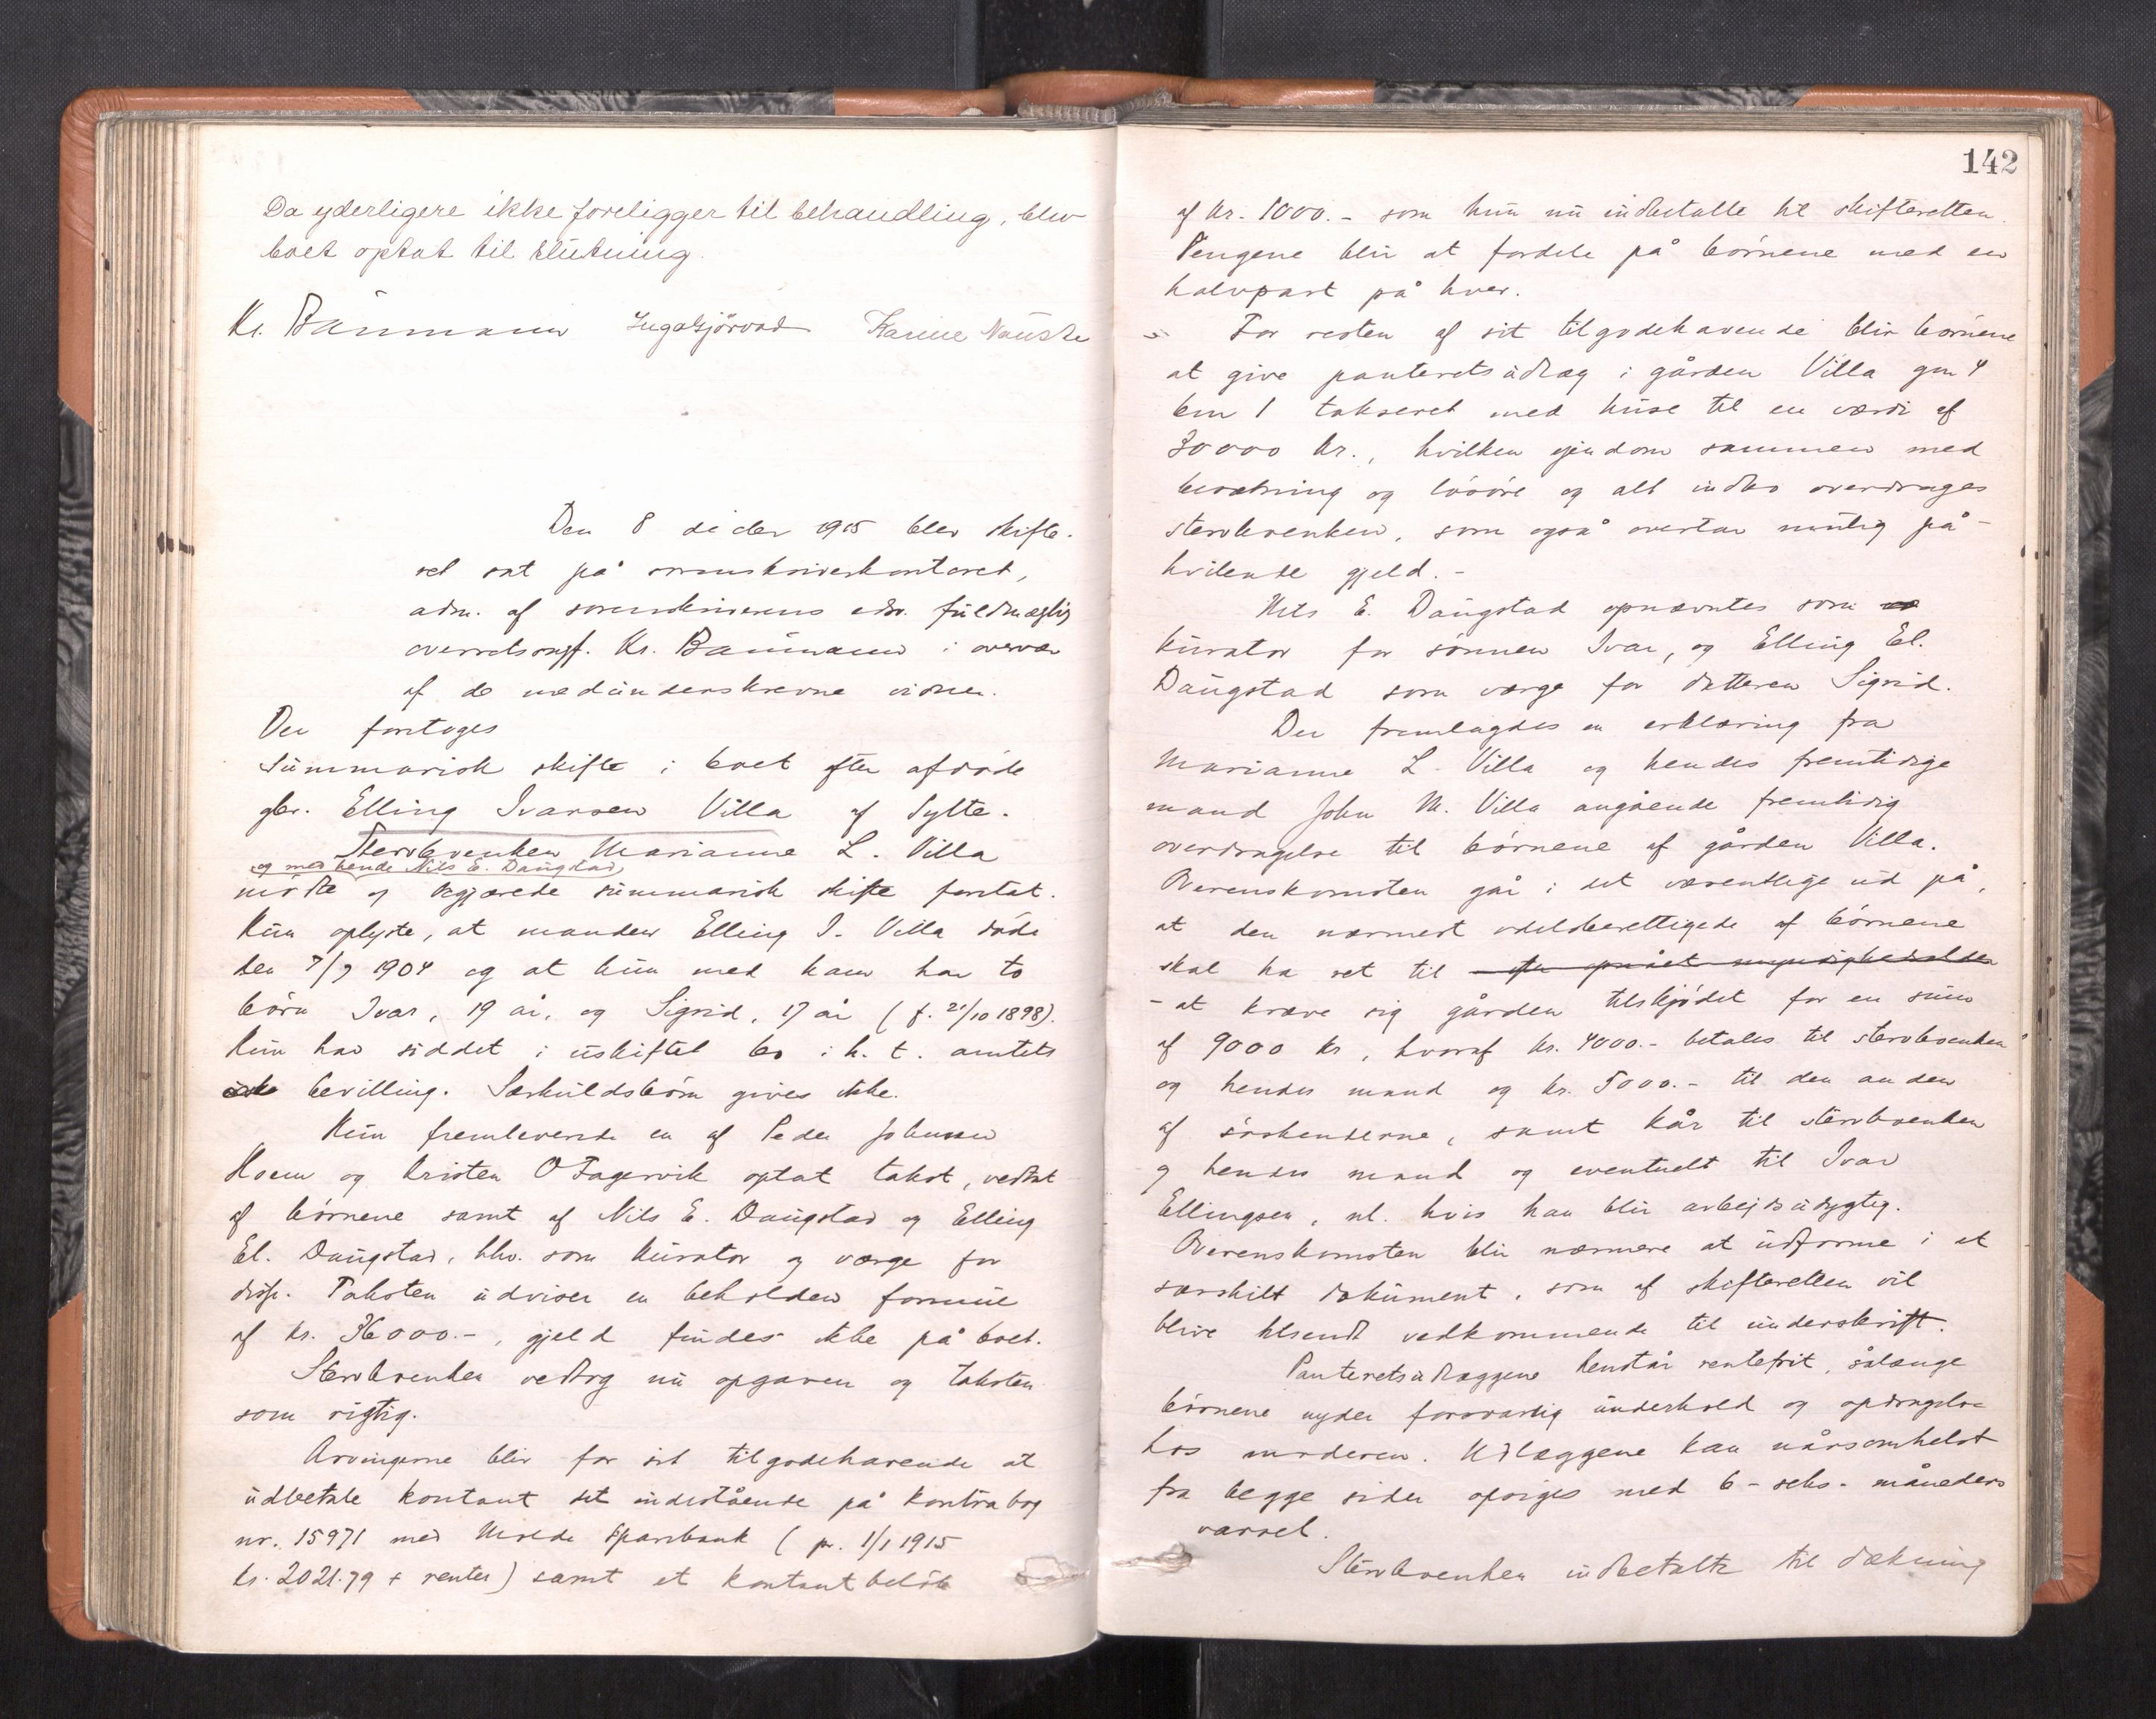 Da yderligere ikke foreligger til behandling, blev
boet optat til slutning.
Kr. Baumann Inga Gjørvad Karine Nauste
Den 8 decbr 1915 blev skifte-
ret sat på sorenskriverkontoret,
adm. af sorenskriverens edsv. fuldmægtig
overretssagf. Kr. Baumann i overvær
af de medunderskrevne vidner.
Der foretoges
summarisk skifte i boet efter afdøde
gbr. Elling Ivarsen Villa af Sylte.
Stervboenken Marianne L. Villa
og med hende Nils E. Daugstad
mødte og begjærede summarisk skifte foretat.
Hun oplyste, at manden Elling I. Villa døde
den 7/7 1904 og at hun med ham har to
børn Ivar, 19 år, og Sigrid, 17 år (f. 21/10 1898).
Hun har siddet i uskiftet bo i h. t. amtets
bevilling. Særkuldsbørn gives ikke.
Hun fremleverede en af Peder Johnsen
Hoem og Kristen O Fagervik optat takst, vedtat
af børnene samt af Nils E. Daugstad og Elling
El. Daugstad, hhv. som kurator og værge for
disse. Taksten udviser en beholden formue
af kr. 36000.-, gjeld findes ikke på boet.
Stervboenken vedtog nu opgaven og taksten
som rigtig.
Arvingerne blir for sit tilgodehavende at
udbetale kontant det indestående på kontrabog
nr. 15971 med Molde Sparebank (pr. 1/1 1915
kr. 2021.79 + renter) samt et kontant beløb
142
af kr. 1000.- som hun nu indbetalte til skifteretten.
Pengene blir at fordele på børnene med en
halvpart på hver.
For resten af sit tilgodehavende blir børnene
at give panteretsudlæg i gården Villa gnr 4
bnr 1 takseret med huse til en værdi af
30000 kr., hvilken ejendom sammen med
besætning og løsøre og alt indbo overdrages
stervboenken, som også overtar mulig på-
hvilende gjeld.-
Nils E. Daugstad opnævntes som
kurator for sønnen Ivar, og Elling El.
Daugstad som værge for datteren Sigrid.
Der fremlagdes en erklæring fra
Marianne L. Villa og hendes fremtidige
mand John M. Villa angående fremtidig
overdragelse til børnene af gården Villa.
Overenskomsten går i det væsentlige ud på,
at den nærmest odelsberettigede af børnene
skal ha ret til efter opnået myndighedsalder
- at kræve sig gården tilskjødet for en sum
af 9000 kr, hvoraf kr. 4000.- betales til stervboenken
og hendes mand og kr. 5000.- til den anden
af søskenderne, samt kår til stervboenken
og hendes mand og eventuelt til Ivar
Ellingsen, nl. hvis han blir arbejdsudygtig.
Overenskomsten blir nærmere at udforme i et
særskilt dokument, som af skifteretten vil
blive tilsendt vedkommende til underskrift.
Panteretsudlæggene henstår rentefrit, sålænge
børnene nyder forsvarlig underhold og opdragelse
hos moderen. Udlæggene kan nårsomhelst
fra begge sider opsiges med 6 - seks - måneders
varsel.
Stervboenken indbetalte til dækning